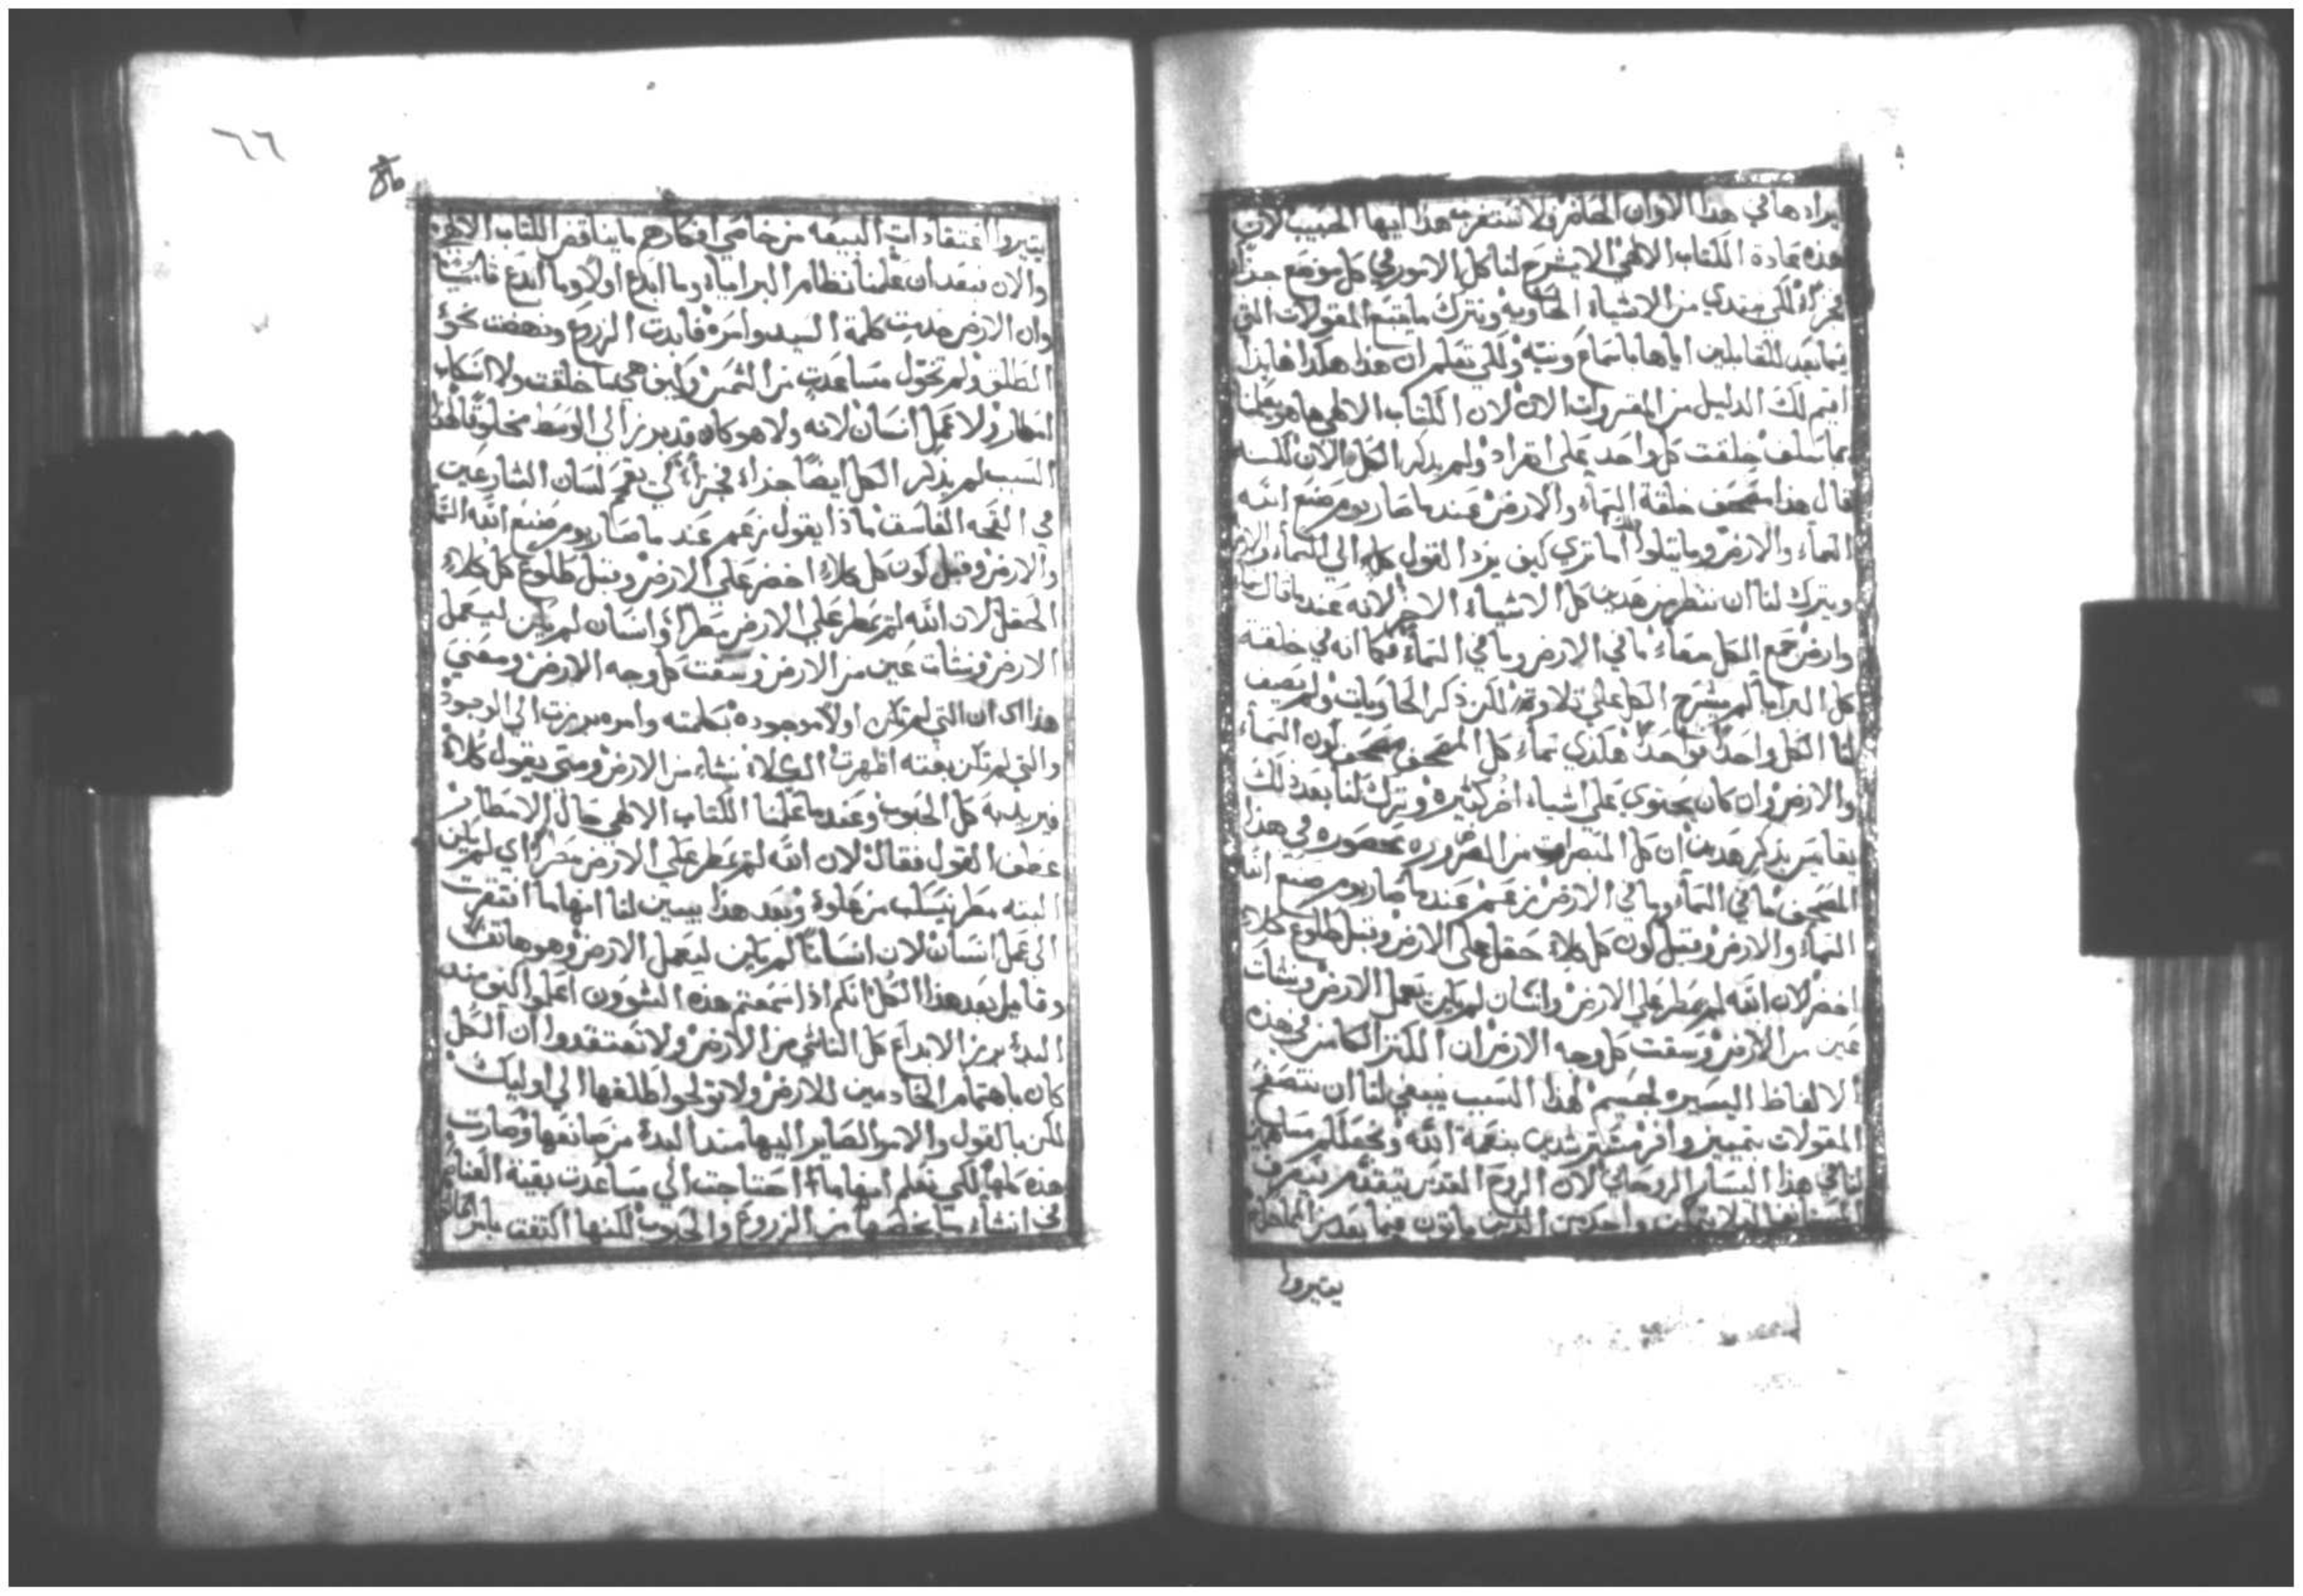 يرادها في هذا الاوان الحاضر ولا تستغرب هذا ايها الحبيب لان
هذه عادة الكتاب الالهي الا يشرح لنا كل الامور في كل موضع حذاً
مجزاء لكن يبتدي من الاشياء الحاوية ويترك ما يتبع المقولات التي
فيما بعد للقابلين اياها باسماع ونبه ولكي تعلم ان هذا هكذا هانذا
اقيم لك الدليل من المقروات الان لان الكتاب الالهي ها هو يعلمنا
بما سلف خلقت كل واحد على انفراد ولم يذكر الكل الان لكنه
قال هذا مصحف خلقة السماء والارض عندما صار يوم صنع الله
السماء والارض وما يتلوا اما تري كيف يرد القول كله الي السماء والارض
ويترك لنا ان ننظر من هدين كل الاشياء الاخر لانه عندما قال
وارض جمع الكل معاء ما في الارض وما في السماء فكما انه في خلقة
كل البرايا لم يشرح الكل علي تلاوة لكن ذكر الحاويات ولم يصف
لنا الكل واحداً بواحد هكذي سماء كل المصحف مصحف لون السماء
والارض وان كان يحتوي على اشياء اخر كثيرة وترك لنا بعد ذلك
بقايس بذكر هدين ان كل المبصرات من الضروره محصوره في هذا
المصحف ما في السماء وما في الارض زعم عندما صار يوم صنع الله
السماء والارض وقبل لون كل كلاء حقل على الارض وقبل طلوع كلاء
اخضر لان الله لم يمطر علي الارض وانسان لم يكن يعمل الارض ونشات
عين من الارض وسقت كل وجه الارض ان الكنز الكامن في هذه
الالفاظ اليسيره لجسيم لهذا السبب ينبغي لنا ان نتصفح
المقولات بتمييز وافر مسترشدين بنعمة الله ونجعلكم مساهمين
لنا في هذا اليسار الروحاني لان الروح القدس يتقدم بنعرف
يتيروا
٦٦
يتيروا اعتقادات البيعه من خاصي افكارهم ما يناقض الكتاب الالهي
والان فبعد ان علمنا نظام البرايا وما ابدع اولاً وما ابدع ثانياً
وان الارض خدمت كلمة السيد وامره فابدت الزروع ونهضت نحو
الطلق ولم تخول مساعدت من الشمس وكيف هي ما خلقت ولا انسكاب
امطار ولا عمل انسان لانه ولا هو كان قد برز الي الوسط مخلوقاً لهذا
السبب لم يذكر الكل ايضاً حذاء مجزاء كي يقم لسان الشارعين
في القحه الفاسق ماذا يقول زعم عند ما صار يوم صنع الله السما
والارض وقبل لون كل كلاء اخضر علي الارض وقبل طلوع كل كلاء
الحقل لان الله لم يمطر علي الارض مطراً وانسان لم يكن ليعمل
الارض ونشات عين من الارض وسقت كل وجه الارض ومعني
هذا اي ان التي لم تكن اولاً موجوده بكلمته وامره برزت الي الوجود
والتي لم تكن بغته اظهرت الكلاء نشاء من الارض ومتي يقول كلاء
فيريد به كل الحبوب وعندما علمنا الكتاب الالهي حال الامطار
عطف القول فقال لان الله لم يمطر علي الارض مطراً اي لم يكن
البته مطر ينسكب من علوه وبعد هذا يبين لنا انها ما افتقرت
الي عمل انسان لان انساناً لم يكن ليعمل الارض وهو هاتف
وقايل بعد هذا الكل انكم اذا سمعتم هذه الشوون اعلموا كيف منذ
البدء برز الابداع كل الناشي من الارض ولا تعتقدوا ان الكل
كان باهتمام الخادمين للارض ولا تولجوا طلقها الي اوليك
لكن بالقول والامر الصاير اليها منذ البدء من صانعها وصارت
هذه كلها لكي نعلم انها ما احتاجت الي مساعدت بقية العناصر
في انشاء ما يخصها من الزروع والحبوب لكنها اكتفت